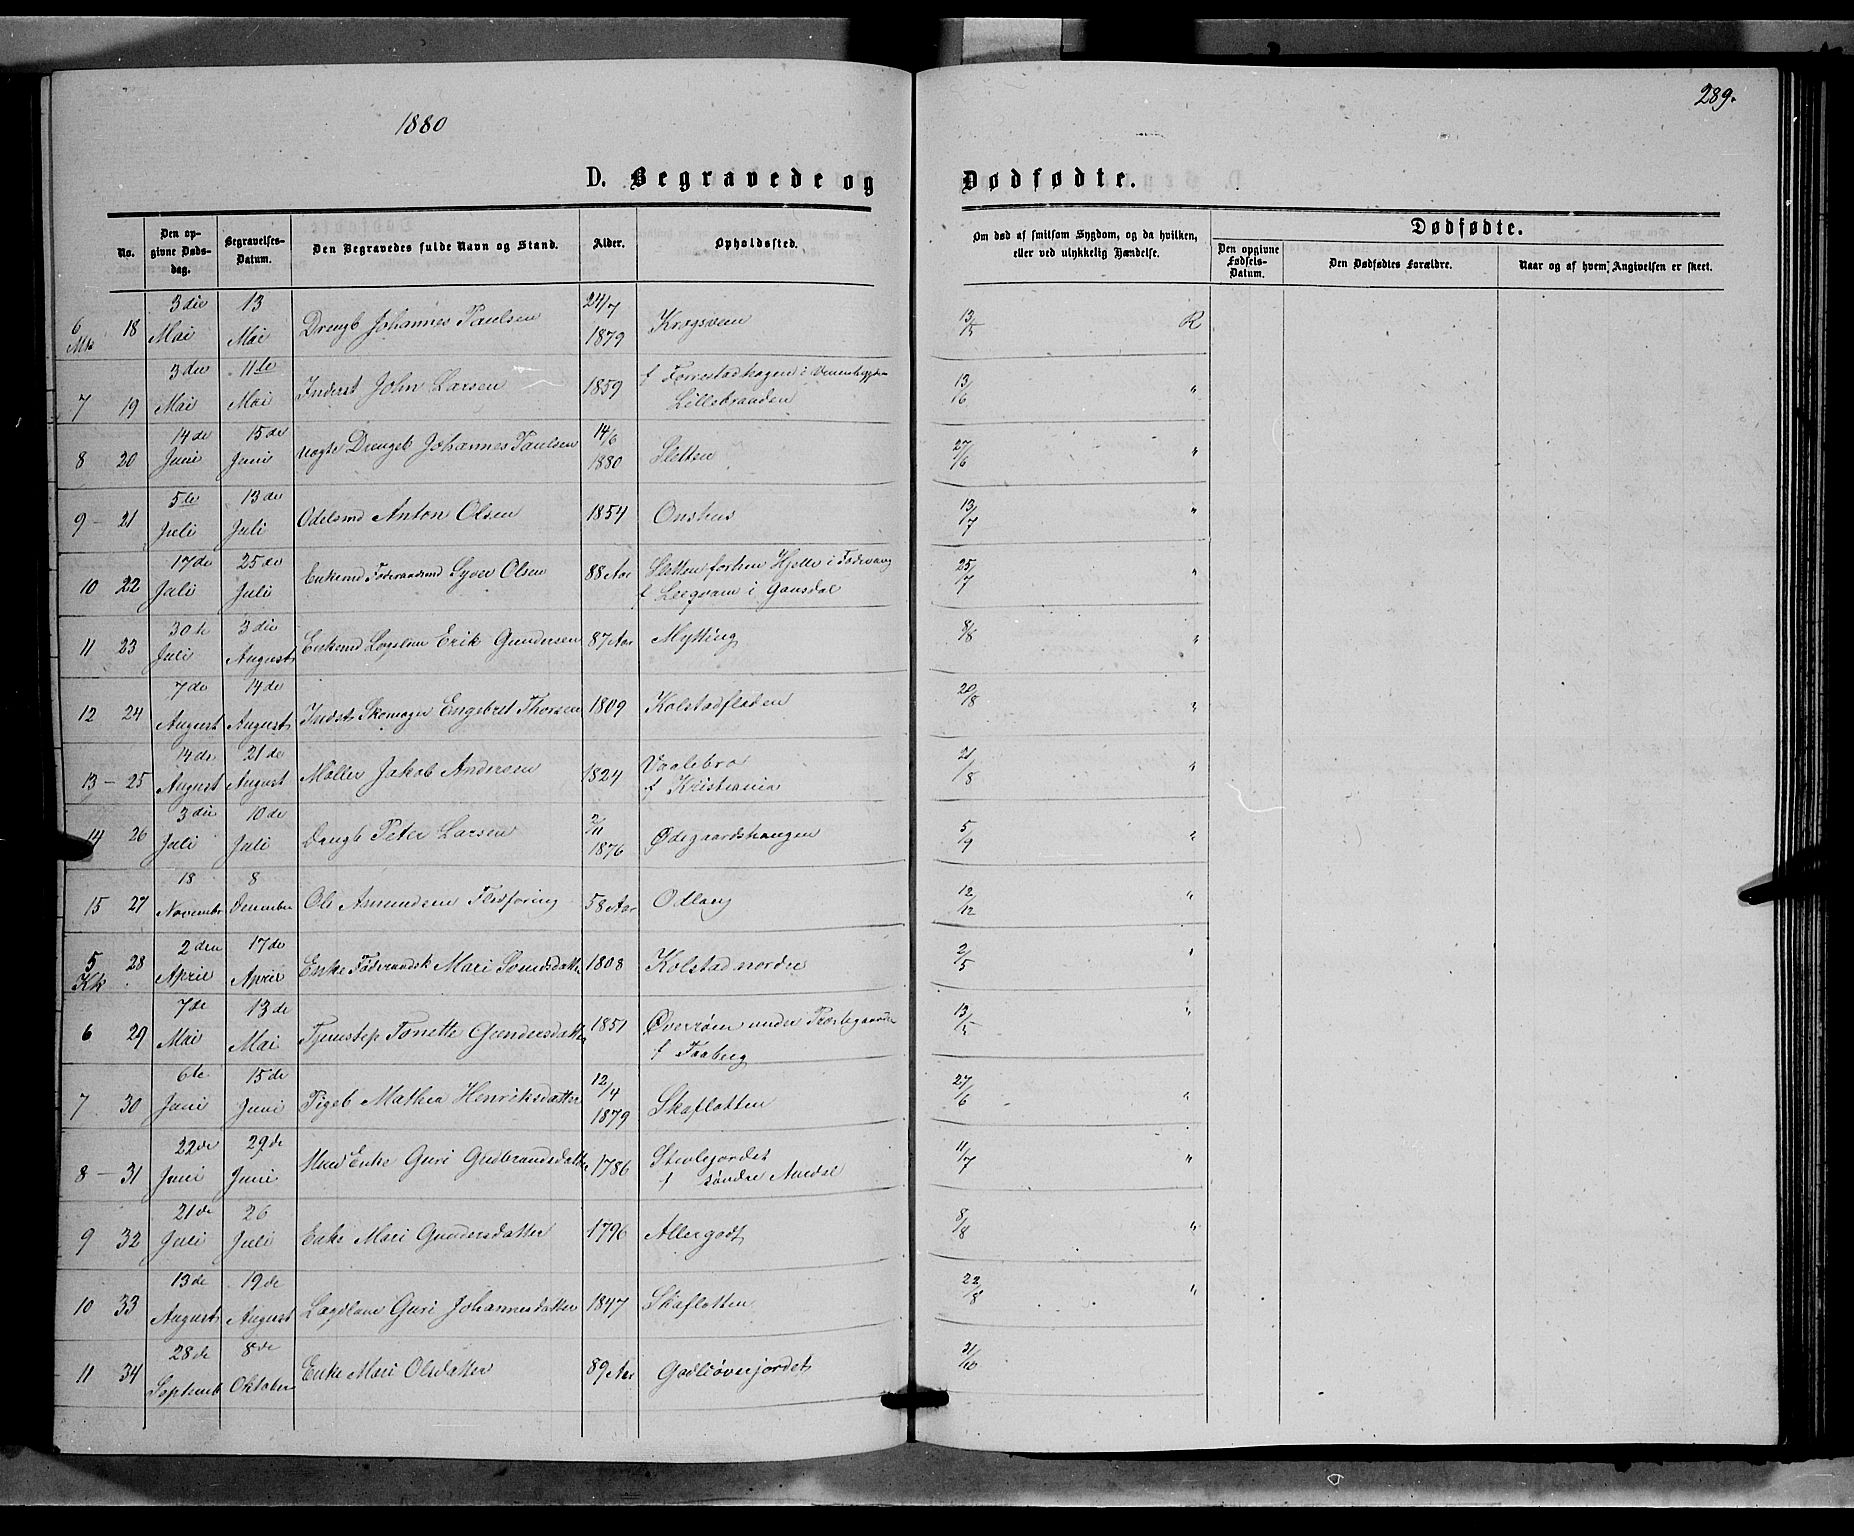 1880
289.
D. Begravede og Dødfødte.
No.
Den opgivne Dødsdag.
Begravelses-Datum.
Den Begravedes fulde Navn og Stand.
Alder.
Opholdssted.
Om død af smitsom Sygdom, og da hvilken, eller ved ulykkelig Hændelse.
Dødfødte.
Den opgivne Fødsels-Datum.
Den Dødfødtes Forældre.
Naar og af hvem Angivelsen er skeet.
6 Mk 18 3die Mai 13 Mai Drengb Johannes Paulsen 24/7 1879 13/5 R
7 19 3die Mai 11te Mai Inderst John Larsen 1859 f Lillebranden 13/6 "
8 20 14de Juni 15de Juni Drengeb Johannes Paulsen 14/6 1880 Sletten 27/6 "
9 - 21 5te Juli 13de Juli Anton Olsen 1854 Onshus 13/7 "
10 22 17de Juli 25de Juli Enkemd Føderaadsmd Syver Olsen 88 Aar Sletten forhen Hjelle i
f i Gausdal 25/7 "
11 23 30te Juli 3die August Enkemd Lægslem Erik Gundersen 87 Aar Mytting 8/8 "
12 24 7de August 14de August Indst Skomager Engebret Thorsen 1809 Kolstadfloden 20/8 "
13 - 25 14de August 21de August Møller Jakob Andersen 1824 Vaalebro
f Kristiania 21/8 "
14 26 3die Juli 10de Juli Peter Larsen 2/11 1876 Ødegaardshaugen 5/9 "
15 27 18 November 8 December Ole Amundsen 58 Aar Odlaug 12/12 "
5 Kk 28 2den April 17de April Enke Føderaadsk Mari 1808 Kolstad nordre 2/5 "
6 29 7de Mai 13de Mai Tjenestep Tonette Gundersdatter 1851 under
f Faaberg 13/5 "
7 30 6te Juni 15de Juni Pigeb Mathea Henriksdatter 12/4 1879 Skaflotten 27/6 "
8 - 31 22de Juni 29de Juni Enke Guri Gudbrandsdatter 1786
f søndre Aurdal 11/7 "
9 32 21de Juli 26 Juli Enke Mari Gundersdatter 1796 Allergodt 8/8 "
10 33 13de August 19de August Guri Johannesdatter 1847 Skaflotten 22/8 "
11 34 28de Septemb 8de Oktober Enke Mari Olsdatter 89 Aar 31/10